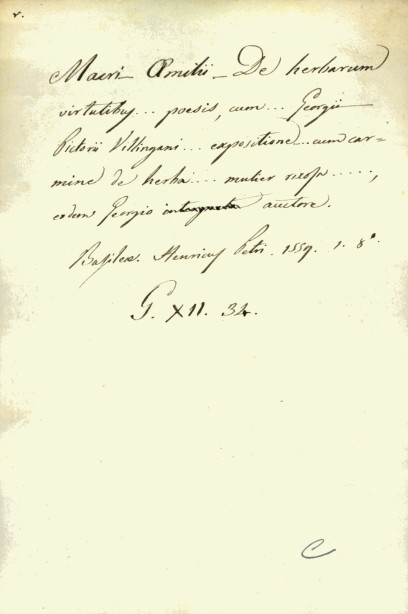 r.
Macri Æmilii _ De herbarum
virtutibus... poesis, cum... Georgii
Pictorii Villingani... expositione... cum car=
mine de herba.... mulier ricosa.....,
eodem Georgio auctore.
Basileæ. Henricus Petri. 1559. 1. 8°.
G. XII. 32.
C